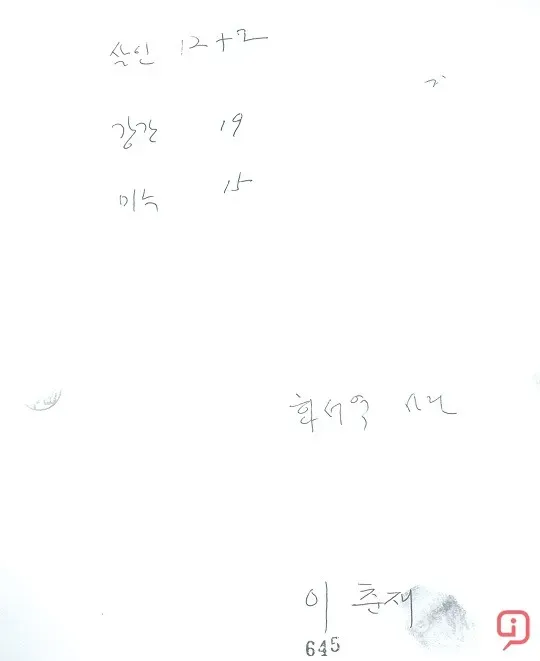 살인 12+2
강간 19
미수 15
화서역 사건
이춘재
645